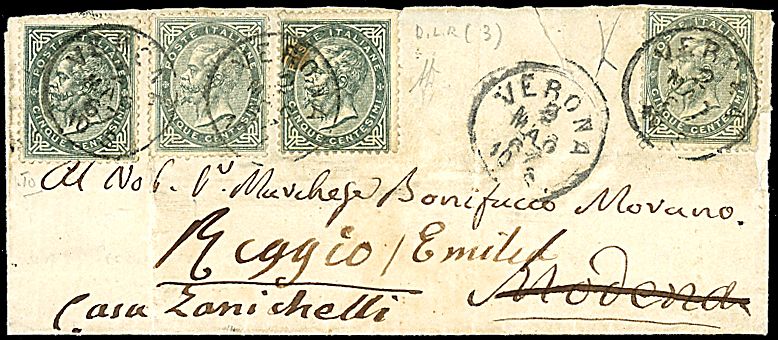 POSTE ITALIANE
CINQUE CENTESIMI
POSTE ITALIANE
CINQUE CENTESIMI
POSTE ITALIANE
CINQUE CENTESIMI
POSTE ITALIANE
CINQUE CENTESIMI
D.L.R (3)
VERONA
8
MAG
67
VERONA
Al Nob. Sr. Marchese Bonifacco Morano.
Reggio / Emilia
Modena
Casa Zanichelli